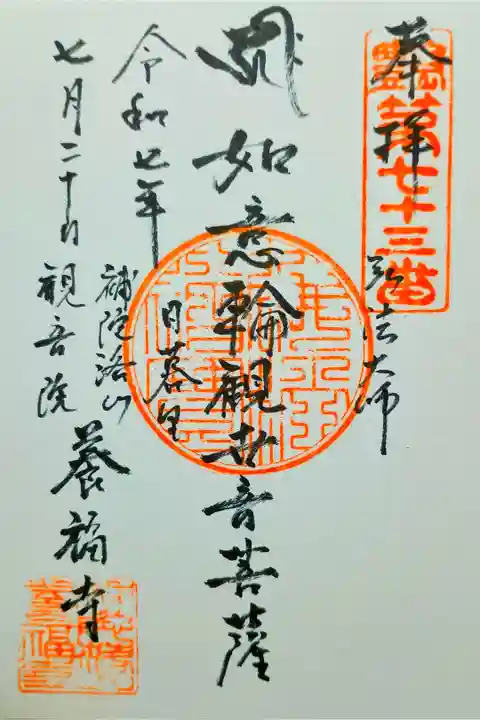 奉拝
第七十三番
弘法大師
如意輪観世音菩薩
令和七年
日暮里
七月二十日
補陀洛山
観音院
養福寺